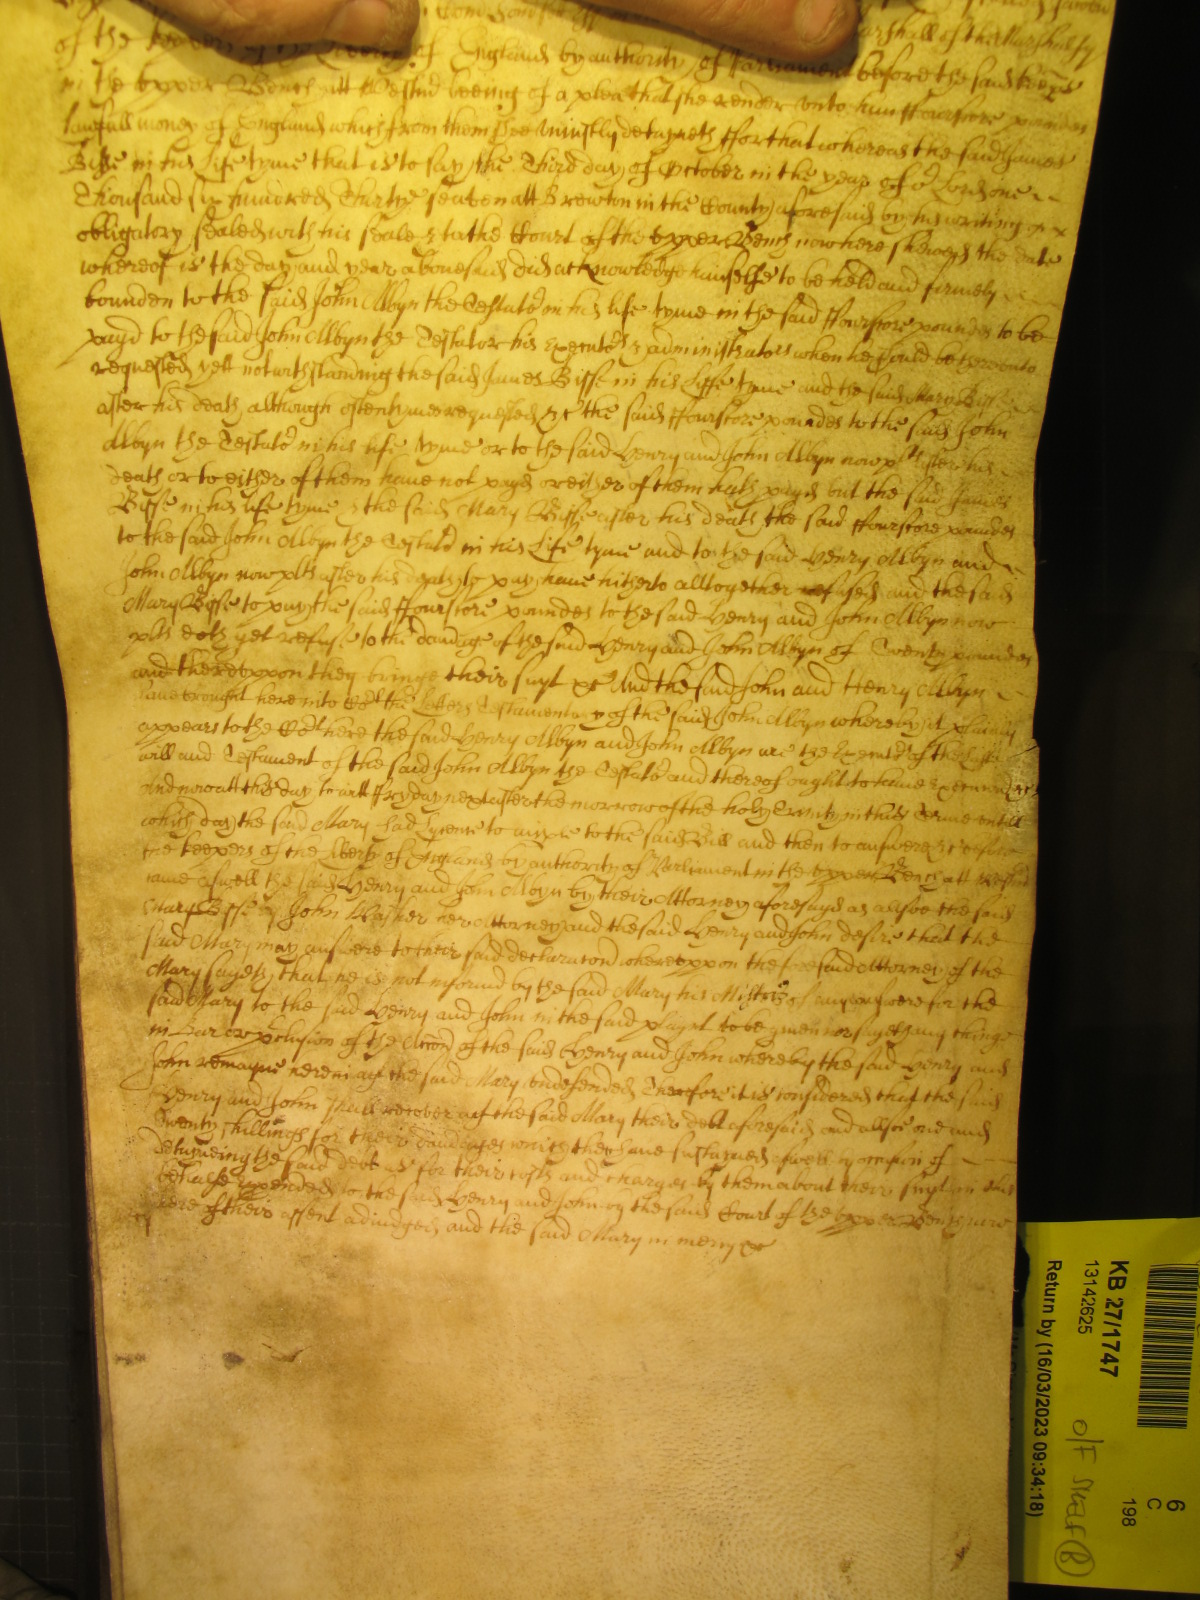 of the keepers of the liberty of England by authority of Parliament before the said keeps
in the upper Bench att Westmr beeing of a plea that she render unto him ffourscore poundes
lawfull money of England which from them shee uniustly detayneth ffor that whereas the said James
Bisse in his life tyme that is to say the Third day of October in the year of or Lord one
Thousand six hundred Thirty seaven att Brewton in the County aforesaid by his writing
obligatory sealed with his seale & to the Court of the upper Bench now here shewed the date
whereof is the day and year abovesaid did acknowledge himselfe to be held and firmely
bounden to the said John Albyn the Testator in his life tyme in the said ffourscore poundes to be
payd to the said John Albyn the Testator his Executors & administrators when he should be thereunto
requested yett notwithstanding the said James Bisse in his Liffe tyme and the said Mary Bisse
after his death although oftentymes requested &c the said ffourscore poundes to the said John
Albyn the Testator in his life tyme or to the said Henry and John Albyn now plts after his
death or to either of them have not payd or either of them hath payd but the said James
Bisse in his life tyme & the said Mary Bisse after his death the said ffourscore poundes
to the said John Albyn the Testator in his Life tyme and to the said Henry Albyn and
John Albyn now plts after his death to pay have hitherto alltogether refused and the said
Mary Bisse to pay the said ffourscore poundes to the said Henry and John Albyn now
plts doth yet refuse to the damage of the said Henry and John Albyn of Twenty poundes
and thereuppon they bringe their suyt &c And the said John and Henry Albyn
have brought here into Cort the Letters Testamentary of the said John Albyn whereby it plainly
appears to the Cort here the said Henry Albyn and John Albyn are the Executors of the last
will and Testament of the said John Albyn the Testator and thereof ought to have Execucon &c
And now att this day to witt ffryday next after the morrow of the holy Trinity in this Terme untill
which day the said Mary had Lycence to imparle to the said Bill and then to answere &c before
the keepers of the liberty of England by authority of Parliament in the upper Bench att Westmr
came aswell the said Henry and John Albyn by their Attorney aforesayd as alsoe the said
Mary Bisse by John her Attorney and the said Henry and John desire that the
said Mary may answere to their said declaracon whereuppon the foresaid Attorney of the
Mary sayeth that he is not informd by the said Mary his Mistris of any answere for the
said Mary to the said Henry and John in the said playnt to be given nor sayeth any thinge
in bar or preclusion of the Accon of the said Henry and John whereby the said Henry and
John remayne therein agt the said Mary undefended Therefore it is considered that the said
Henry and John shall recover agt the said Mary their debt aforesaid and allsoe one and
Twenty shillings for their damages which they have sustayned aswell by occasion of
detayneing the said debt as for their costs and charges by them about their suyt in this
behalfe expended to the said Henry and John by the said Court of the upper Bench now
here of their assent adiudged and the said Mary in mercy &c
KB 27/1747
13142625
Return by (16/03/2023 09:34:18)
6
C
198
O/F Shelf (B)